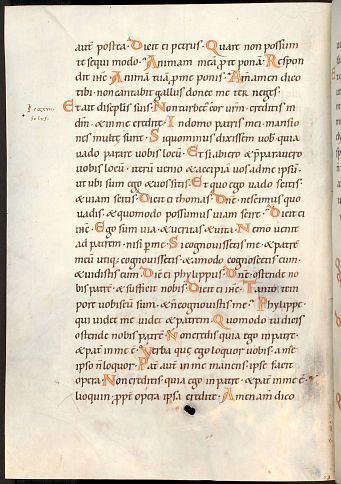 aut postea. Dicit ei petrus. Quare non possum
te sequi modo. Animam meã p te ponã. Respon
dit ihc. Animã tuã p me ponis. Amamen dico
tibi. non cantabit gallus donec me ter neges.
Et ait discipłis suis. Non turbet cor vrm. creditis in
dm̃. & in me credite. In domo patris mei mansio
nes multę sunt. Siquominus dixissem vob. quia
vado parare vobis locũ. Et si abiero & p̃paravero
vobis locũ. iterũ venio & accipiã vos ad me ipsũ.
ut ubi sum ego & vos sitis. Et quo ego vado scitis
& viam scitis. Dicit ei thomas. Dñe. nescimus quo
vadis. & quomodo possumus viam scire. Dicit ei
ihc. Ego sum via. & veritas. & vita. Nemo venit
ad patrem. nisi p me. Si cognovissetis me. & patrẽ
meũ utiq; cognovissetis. & amodo cognoscetis eum.
& vidistis eum. Dic ei phylippus. Dñe. ostende no
bis patrẽ. & sufficit nobis. Dicit ei ihc. Tanto tem
pore vobiscũ sum. & ñ cognovistis me. Phylippe.
qui videt me videt & patrem. Quomodo tu dicis
ostende nobis patrẽ. Non credis quia ego in patre
& pat in me ẽ. Verba quę ego loquor vobis. a me
ipso ñ loquor. Pat aut in me manens. ipse facit
opera. Non creditis quia ego in patre. & pat in me ẽ.
lioquin. ppt opera ipsa credite. Amen am dico